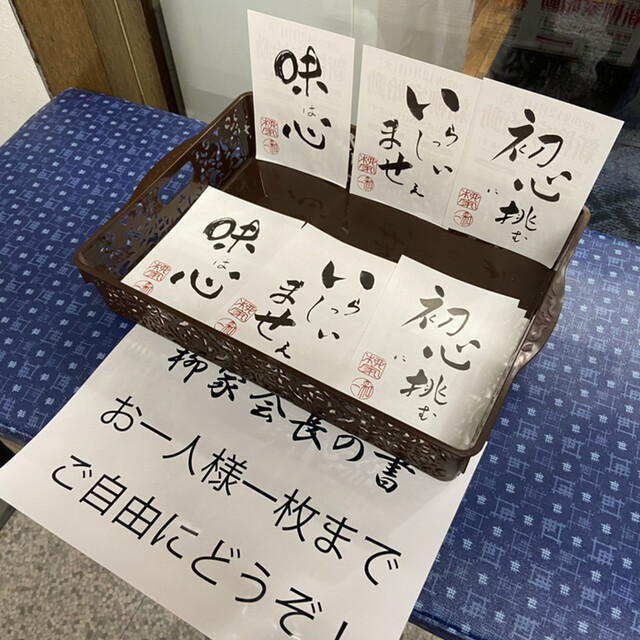 味は心
いらっしぃませぇ
初心に挑む
味は心
いらっしぃませぇ
初心に挑む
柳家会長の書
お一人様一枚まで
ご自由にどうぞ！